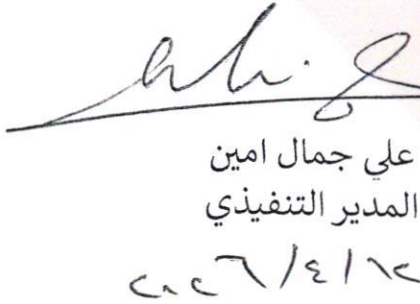 علي جمال امين
المدير التنفيذي
٢٠٢٦/٤/١٢